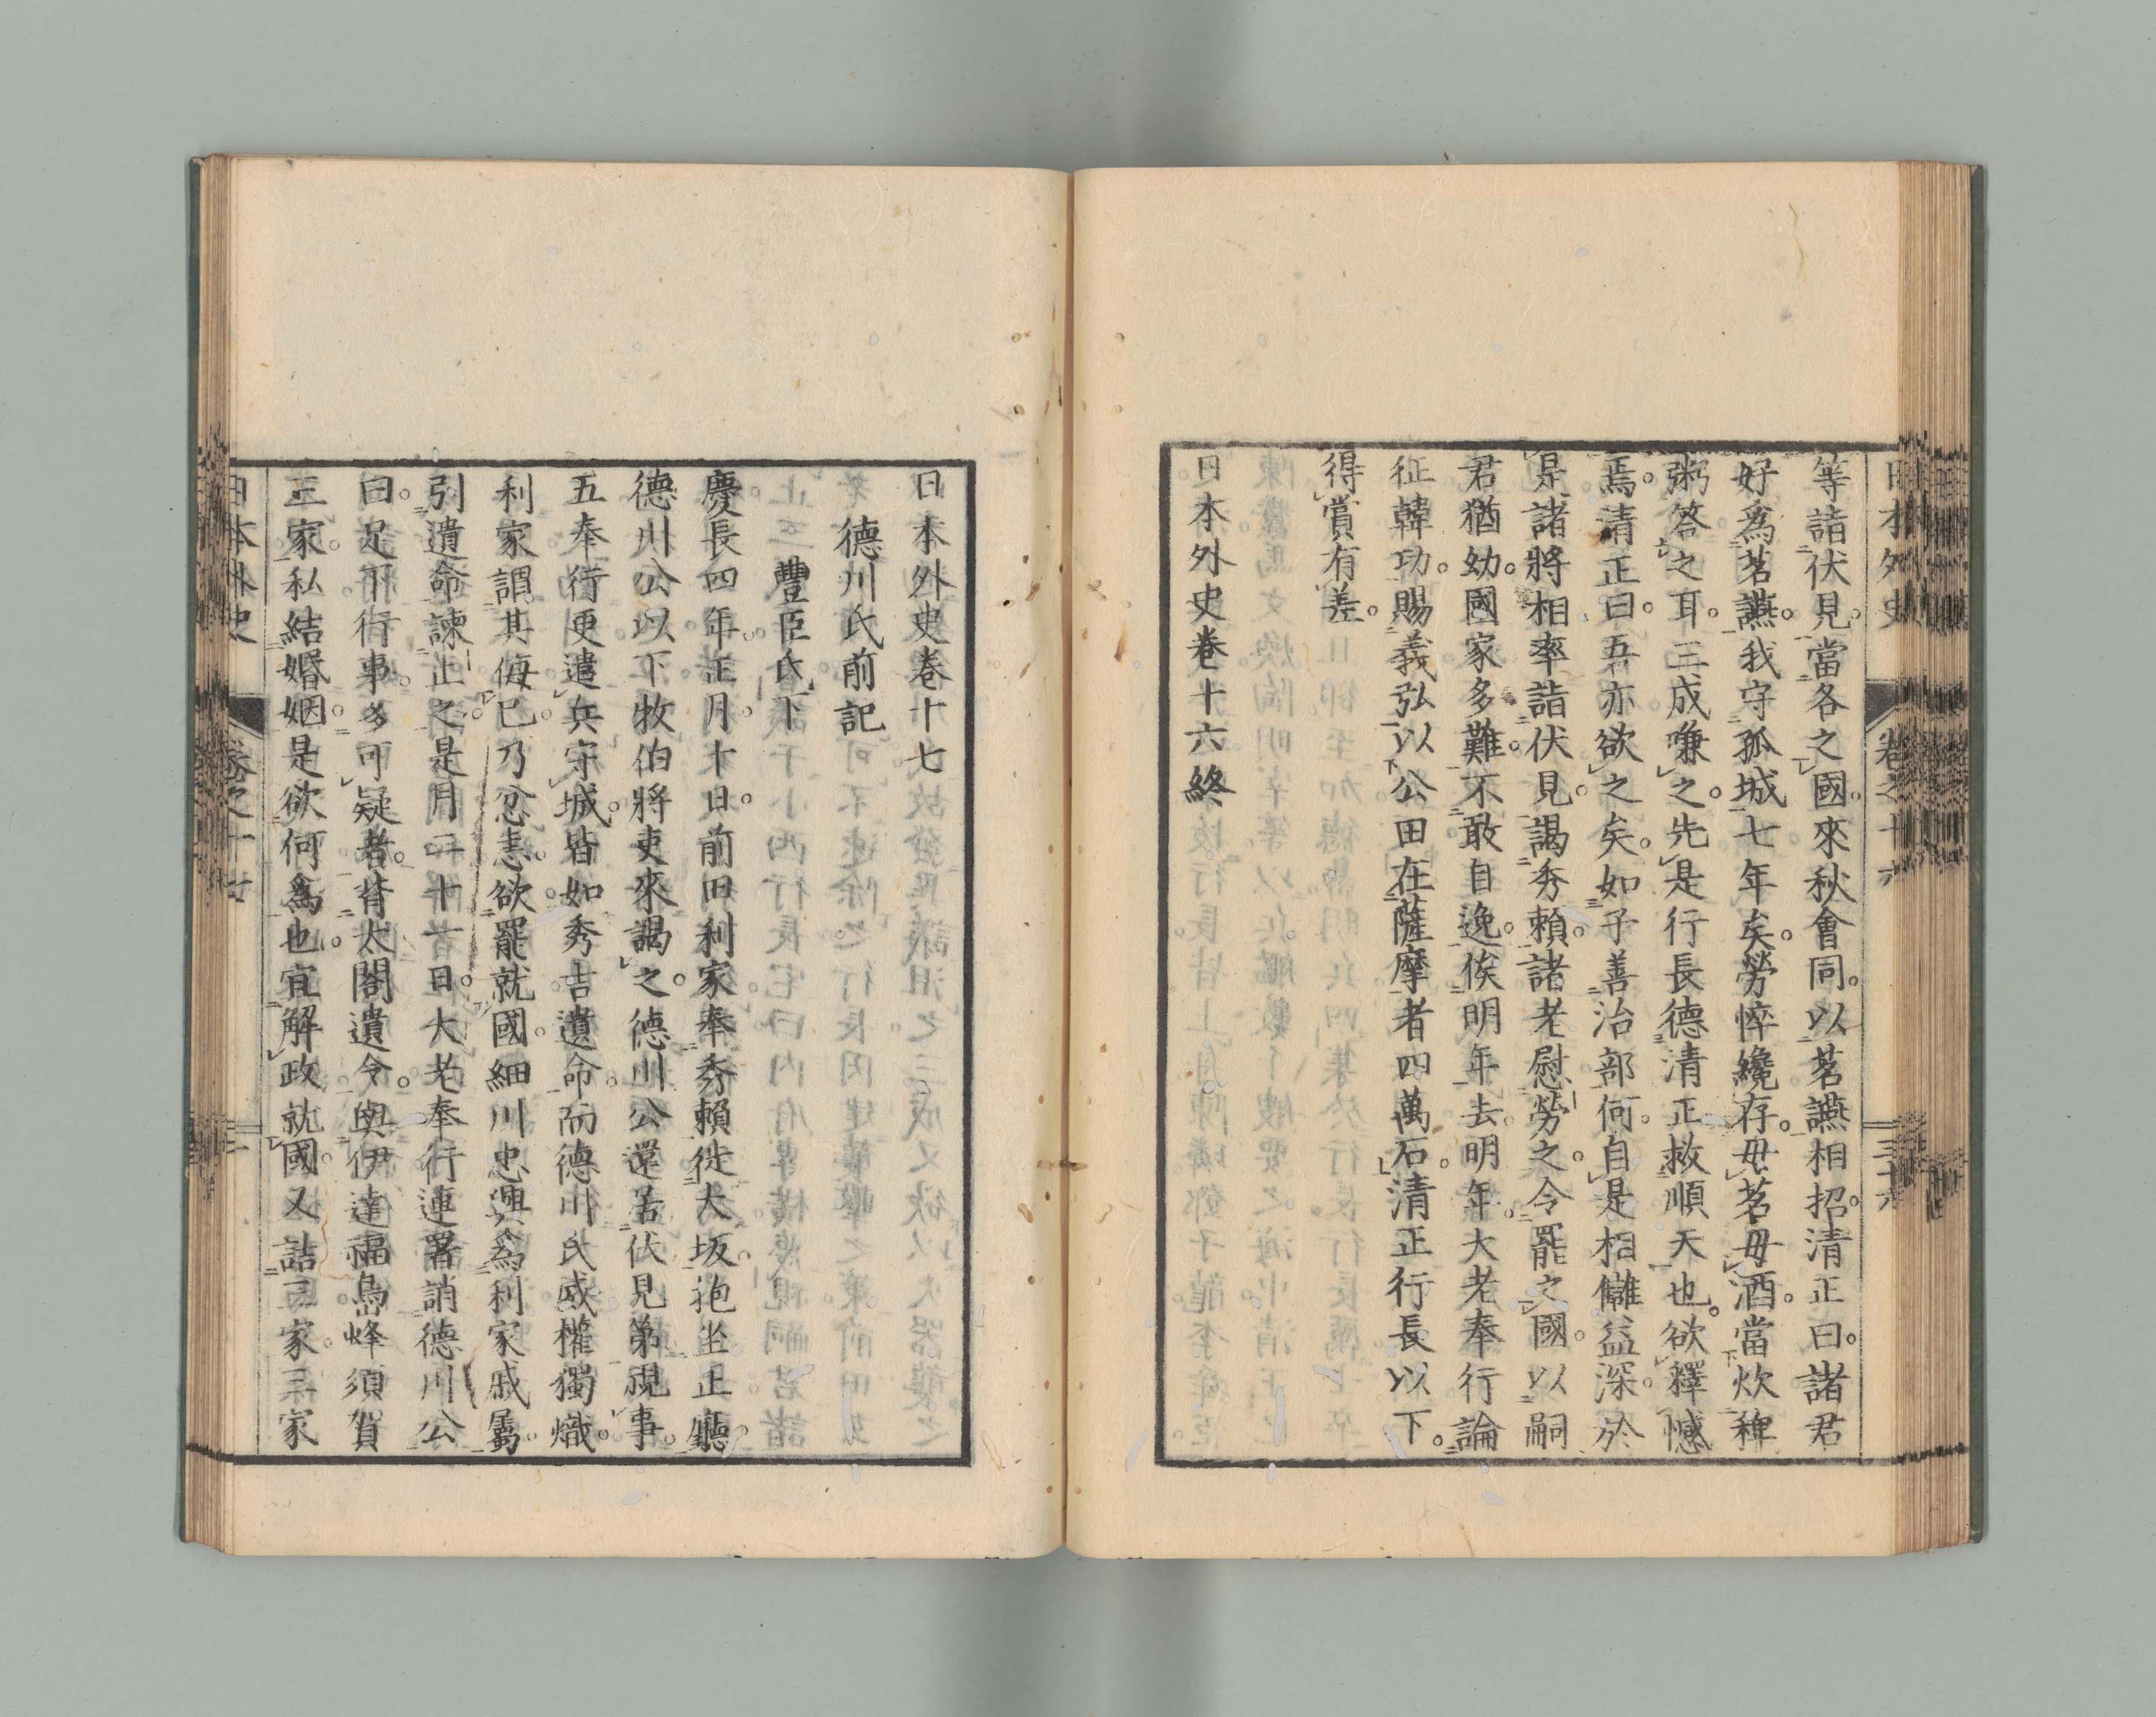 日本外史
卷之十六
三十六
等詣伏見。當各之國。來秋會同。以茗讌相招。清正曰。諸君
好爲茗讌。我守孤城七年矣。勞悴纔存。毋茗毋酒。當炊稗
粥答之耳。三成嗛之。先是行長德清正救順天也。欲釋憾
焉。清正曰。吾亦欲之矣。如子善治部何。自是相讎益深。於
是諸將相率詣伏見。謁秀賴。諸老慰勞之。令罷之國。以嗣
君猶幼。國家多難。不敢自逸。俟明年去。明年。大老奉行論
征韓功。賜義弘以公田在薩摩者四萬石。清正行長以下。
得賞有差。
日本外史卷十六終
日本外史卷十七
德川氏前記
豐臣氏下
慶長四年。正月。十日。前田利家奉秀賴徙大坂。抱坐正廳。
德川公以下牧伯將吏來謁之。德川公還居伏見第視事。
五奉行更遣兵守城。皆如秀吉遺命。而德川氏威權獨熾。
利家謂其侮已。乃忿恚。欲罷就國。細川忠興爲利家戚屬。
引遺命諫止之。是月二十一日。大老奉行連署誚德川公
曰。足下行事。多可疑者。背太閤遺令。與伊達福島蜂須賀
三家。私結婚姻。是欲何爲也。宜解政就國。又詰三家。三家
日本外史
卷之十七